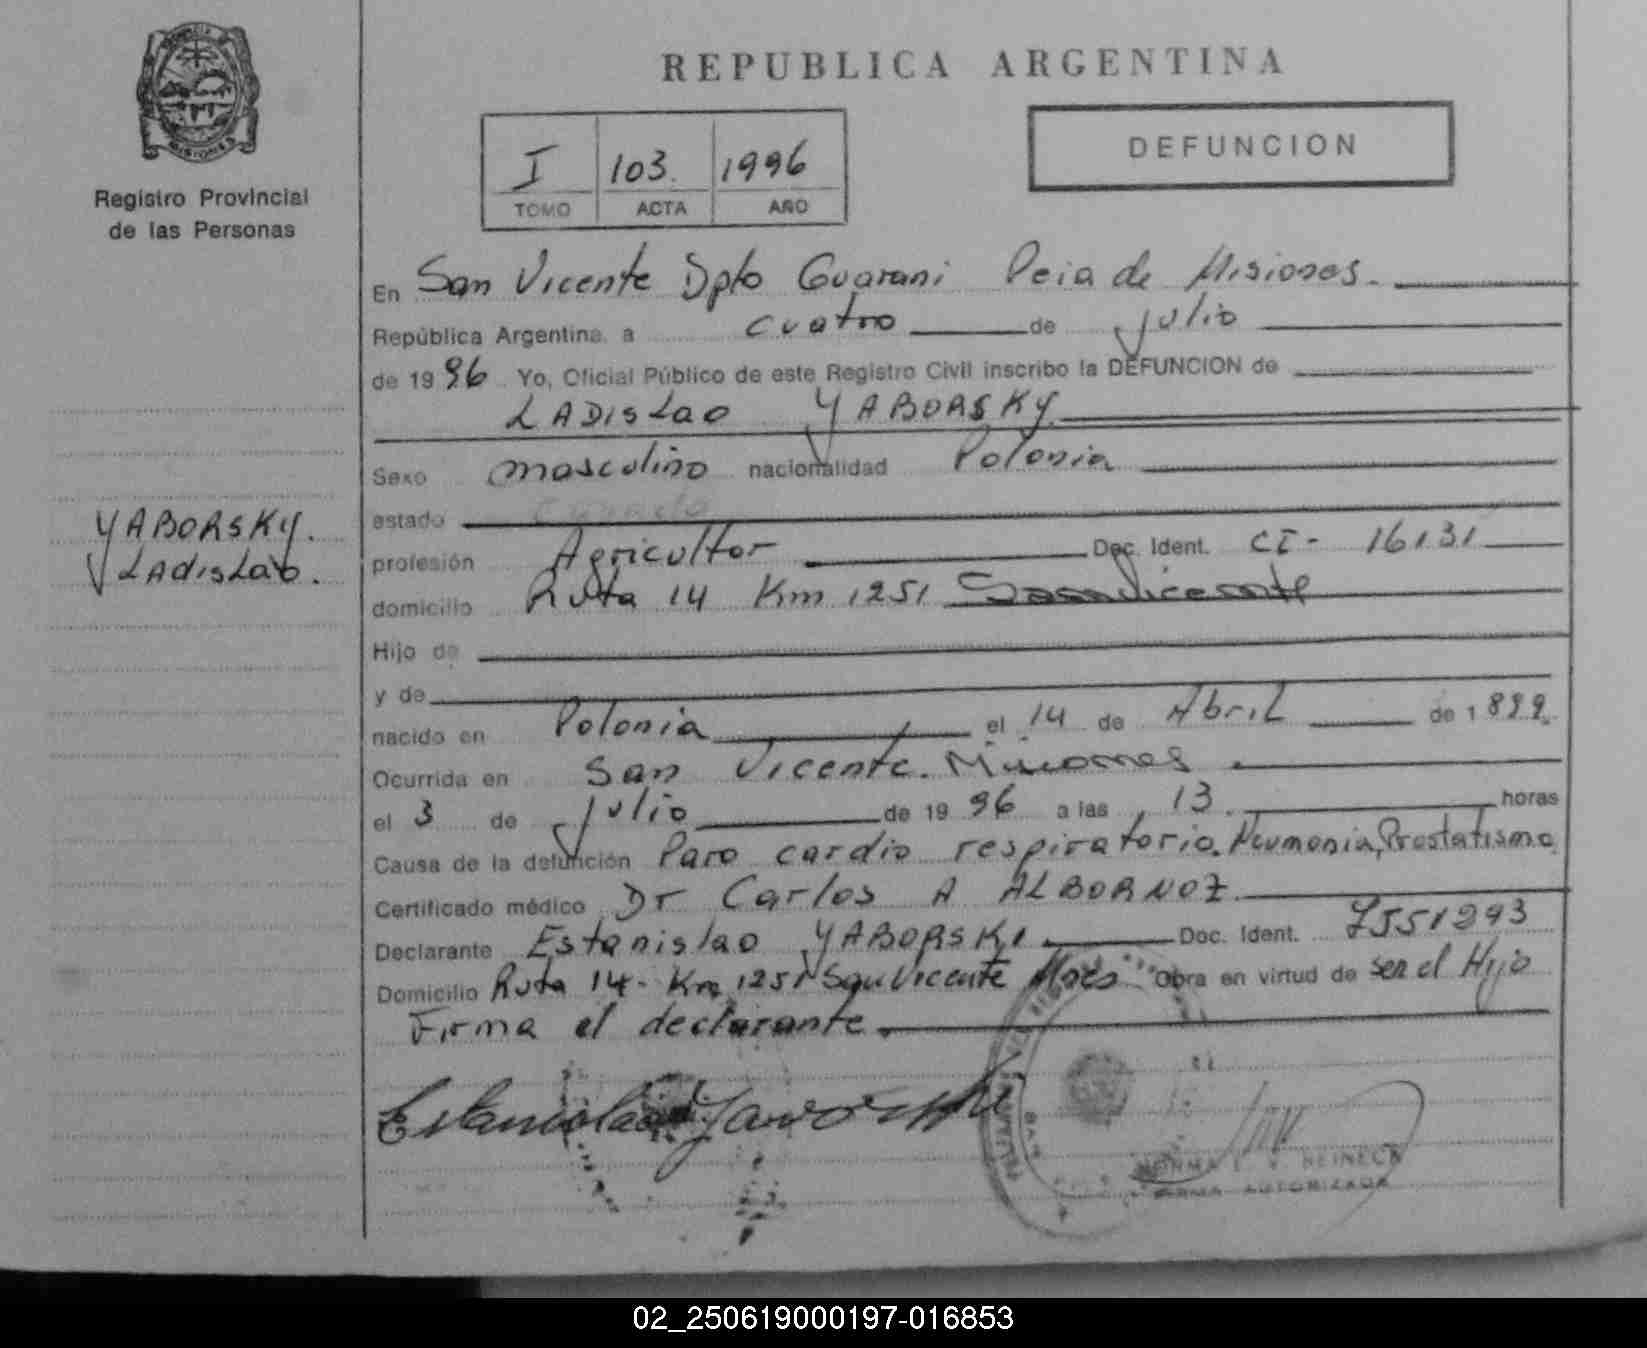 MISIONES
Registro Provincial
de las Personas
REPUBLICA ARGENTINA
I 103. 1996
TOMO ACTA AÑO
DEFUNCION
En San Vicente Dpto Guarani Pcia de Misiones.
República Argentina, a cuatro de julio
de 1996 Yo, Oficial Público de este Registro Civil inscribo la DEFUNCION de
LADISLAO YABORSKY
Sexo masculino nacionalidad Polonia
YABORSKY.
LADISLAO.
estado
profesión Agricultor Doc. Ident. CI- 16131
domicilio Ruta 14 Km 1251 San Vicente
Hijo de
y de
nacido en Polonia el 14 de Abril de 1899.
Ocurrida en San Vicente. Misiones
el 3 de julio de 1996 a las 13 horas
Causa de la defunción Paro cardio respiratorio. Neumonia, Prostatismo
Certificado médico Dr Carlos A ALBORNOZ
Declarante Estanislao YABORSKI Doc. Ident. 7551293
Domicilio Ruta 14- Km 1251 San Vicente Mnes Obra en virtud de ser el Hijo
Firma el declarante
Estanislao Javorski
FIRMA AUTORIZADA
02_250619000197-016853